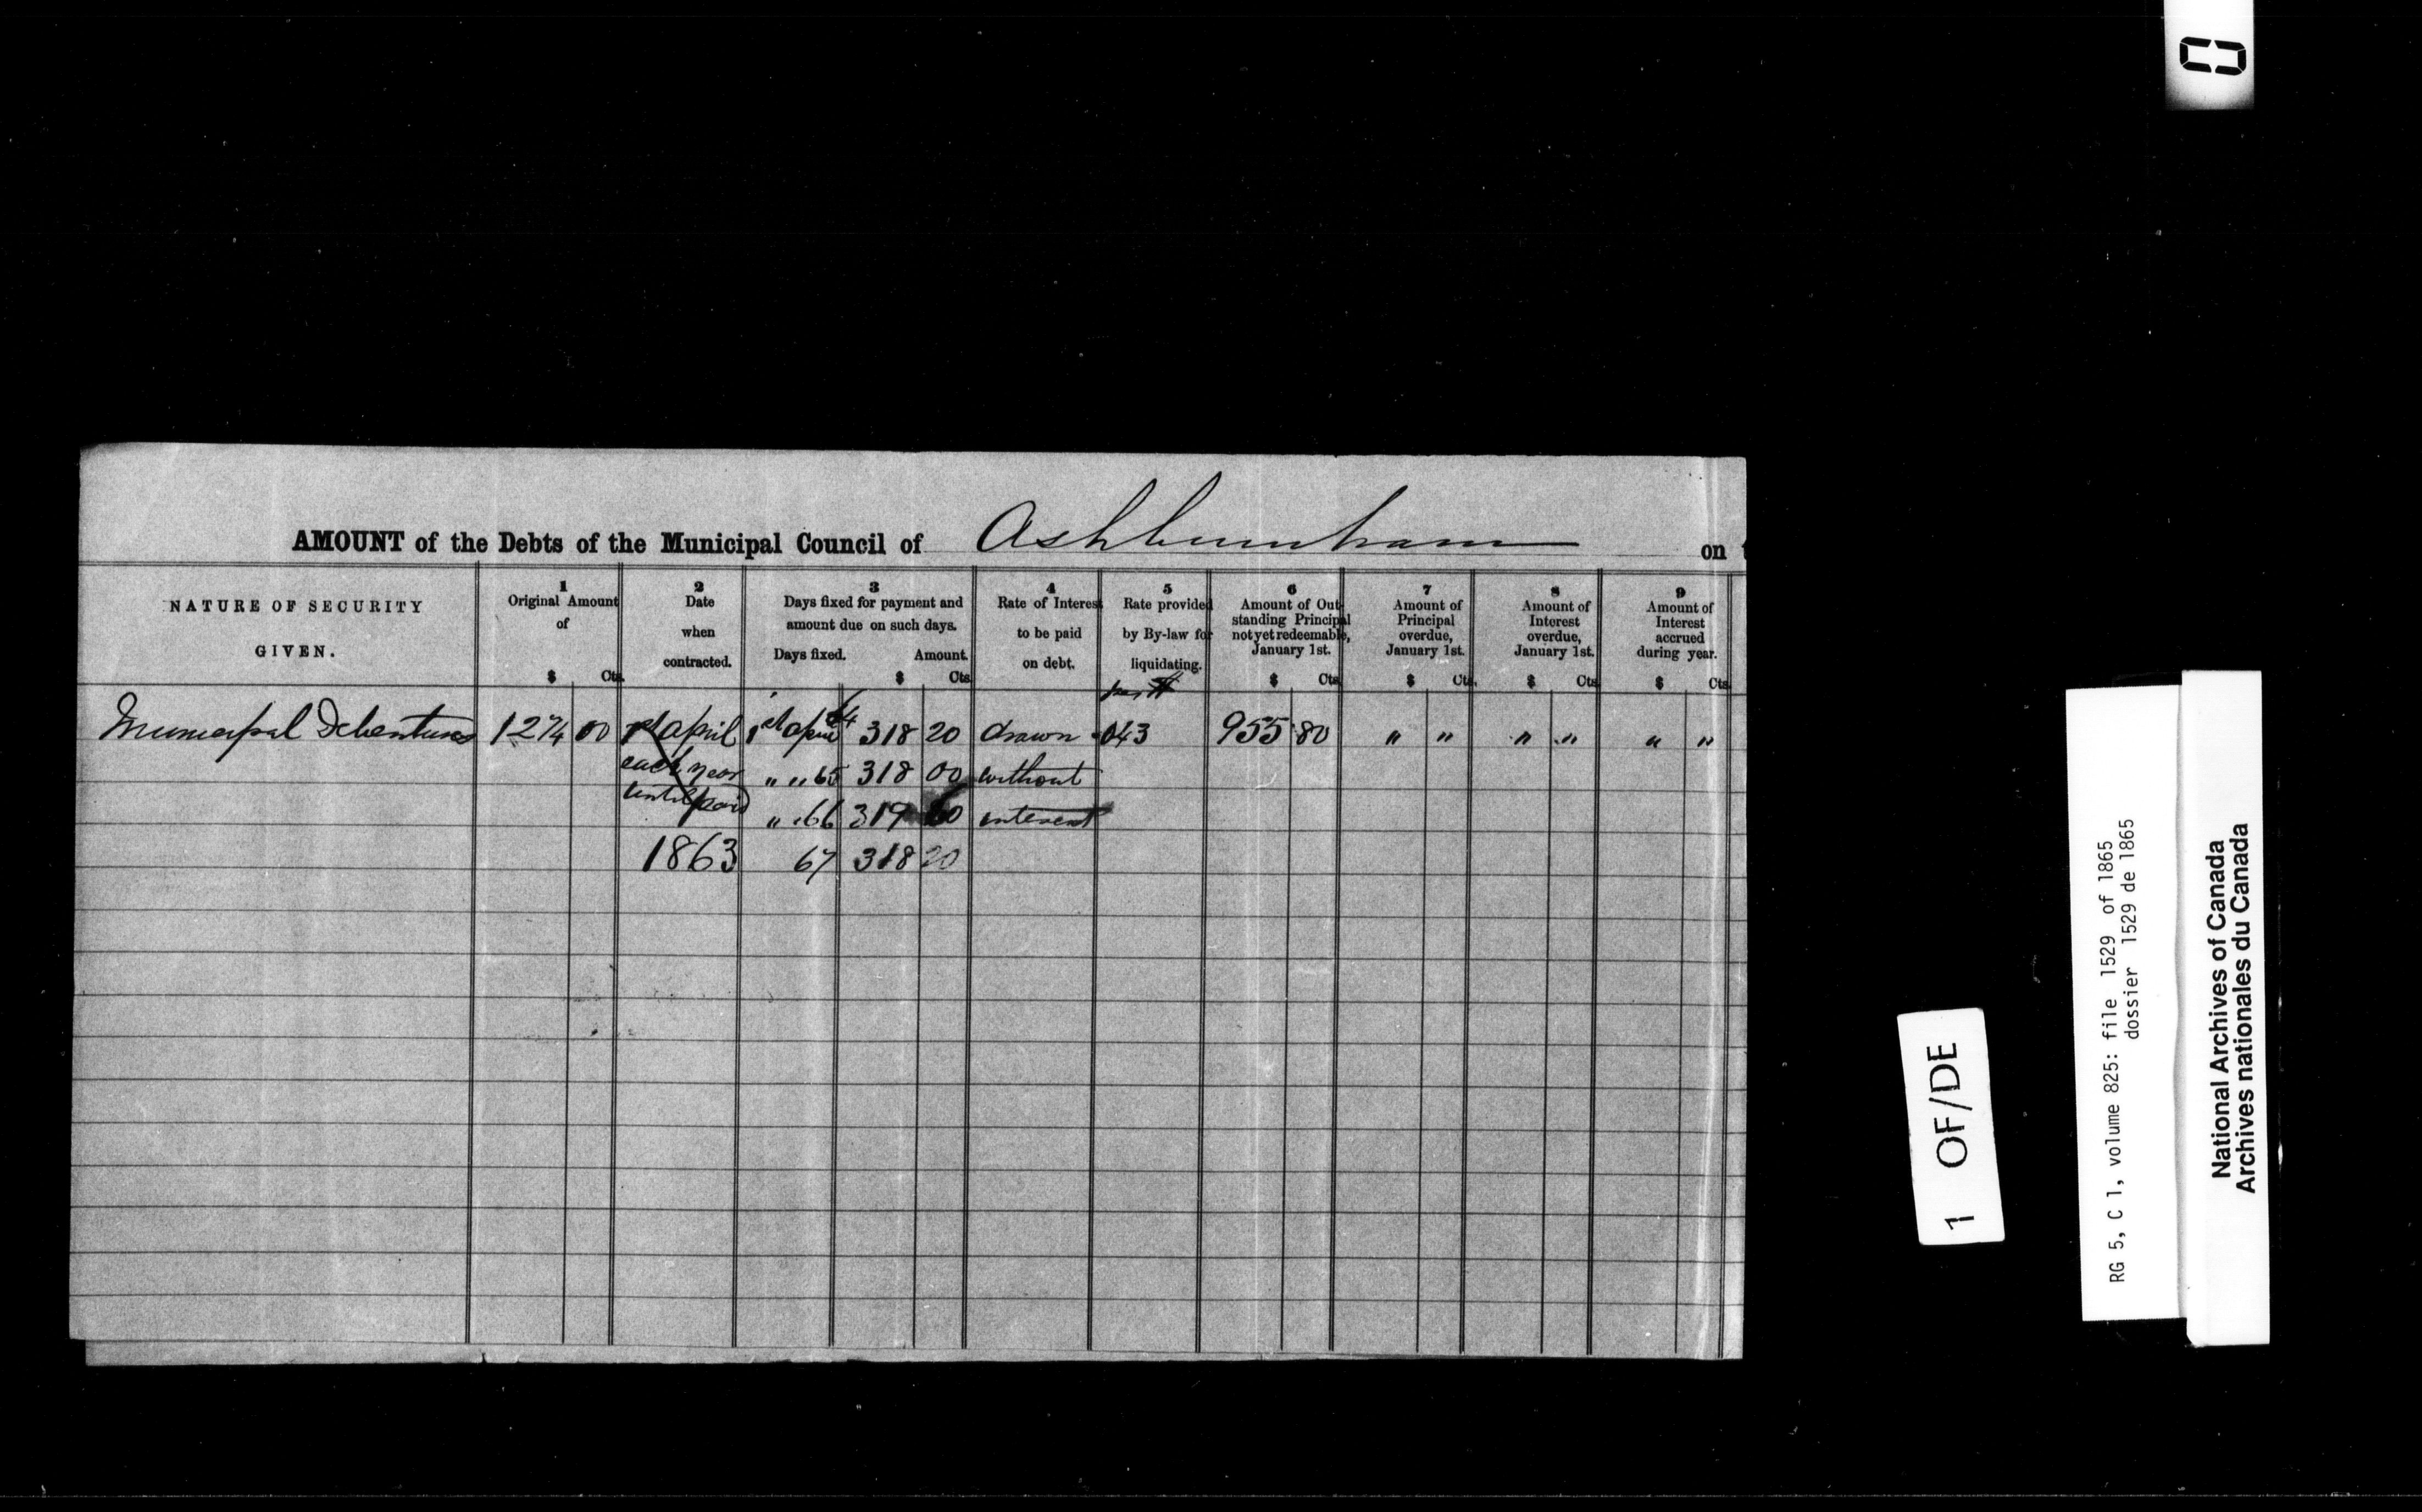 AMOUNT of the Debts of the Municipal Council of Ashburnham on
NATURE OF SECURITY
GIVEN.
1
Original Amount
of
$ Cts.
2
Date
when
contracted.
3
Days fixed for payment and
amount due on such days.
Days fixed. Amount.
$ Cts
4
Rate of Interest
to be paid
on debt.
5
Rate provided
by By-law for
liquidating.
6
Amount of Out
standing Principal
not yet redeemable,
January 1st.
$ Cts
7
Amount of
Principal
overdue,
January 1st.
$ Cts.
8
Amount of
Interest
overdue,
January 1st.
$ Cts
9
Amount of
Interest
accrued
during year.
$ Cts
Municipal Debentures 1274 00 1st April 1st April 64 318 20 drawn 043 955 80 " " " " " "
each year " " 65 318 00 without
until paid " " 66 319 60 interest
1863 67 318 20
1 OF/DE
RG 5, C 1, volume 825: file 1529 of 1865
dossier 1529 de 1865
National Archives of Canada
Archives nationales du Canada